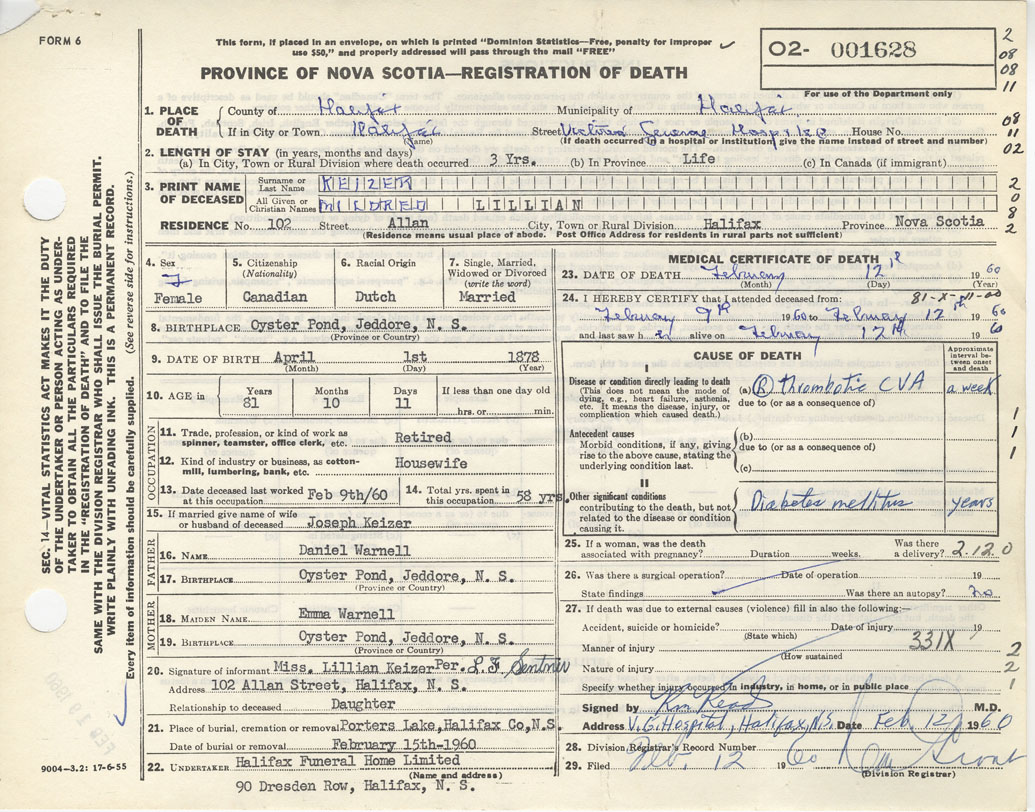 FORM 6
This form, if placed in an envelope, on which is printed "Dominion Statistics—Free, penalty for improper
use $50," and properly addressed will pass through the mail "FREE"
PROVINCE OF NOVA SCOTIA—REGISTRATION OF DEATH
02- 001628
For use of the Department only
2
08
08
11
08
11
02
2
0
8
2
1. PLACE OF DEATH
County of Halifax Municipality of Halifax
If in City or Town Halifax Street Victoria General Hospital House No.
(Name) (If death occurred in a hospital or institution, give the name instead of street and number)
2. LENGTH OF STAY (in years, months and days)
(a) In City, Town or Rural Division where death occurred 3 Yrs. (b) In Province Life (c) In Canada (if immigrant)
3. PRINT NAME OF DECEASED
Surname or Last Name KEIZER
All Given or Christian Names MILDRED LILLIAN
RESIDENCE No. 102 Street Allan City, Town or Rural Division Halifax Province Nova Scotia
(Residence means usual place of abode. Post Office Address for residents in rural parts not sufficient)
4. Sex F Female
5. Citizenship (Nationality) Canadian
6. Racial Origin Dutch
7. Single, Married, Widowed or Divorced (write the word) Married
8. BIRTHPLACE Oyster Pond, Jeddore, N. S.
(Province or Country)
9. DATE OF BIRTH April 1st 1878
(Month) (Day) (Year)
10. AGE in Years 81 Months 10 Days 11 If less than one day old hrs. or min.
OCCUPATION
11. Trade, profession, or kind of work as spinner, teamster, office clerk, etc. Retired
12. Kind of industry or business, as cotton-mill, lumbering, bank, etc. Housewife
13. Date deceased last worked at this occupation Feb 9th/60
14. Total yrs. spent in this occupation 58 yrs.
15. If married give name of wife or husband of deceased Joseph Keizer
FATHER
16. NAME Daniel Warnell
17. BIRTHPLACE Oyster Pond, Jeddore, N. S.
(Province or Country)
MOTHER
18. MAIDEN NAME Emma Warnell
19. BIRTHPLACE Oyster Pond, Jeddore, N. S.
(Province or Country)
20. Signature of informant Miss. Lillian Keizer Per. L.F. Sentner
Address 102 Allan Street, Halifax, N. S.
Relationship to deceased Daughter
21. Place of burial, cremation or removal Porters Lake, Halifax Co, N.S.
Date of burial or removal February 15th-1960
22. UNDERTAKER Halifax Funeral Home Limited
(Name and address)
90 Dresden Row, Halifax, N. S.
MEDICAL CERTIFICATE OF DEATH
23. DATE OF DEATH February 12th 1960
(Month) (Day) (Year)
81-X-11-00
24. I HEREBY CERTIFY that I attended deceased from:
February 9th 1960 to February 12th 1960
and last saw h er alive on February 12th 1960
CAUSE OF DEATH
Approximate interval between onset and death
I
Disease or condition directly leading to death
(This does not mean the mode of dying, e.g., heart failure, asthenia, etc. It means the disease, injury, or complication which caused death.)
(a) (R) thrombotic CVA a week
due to (or as a consequence of)
Antecedent causes
Morbid conditions, if any, giving rise to the above cause, stating the underlying condition last.
(b)
due to (or as a consequence of)
(c)
II
Other significant conditions
contributing to the death, but not related to the disease or condition causing it.
Diabetes mellitus years
1
1
1
25. If a woman, was the death associated with pregnancy? Duration weeks. Was there a delivery? 2.12.0
26. Was there a surgical operation? Date of operation 19
State findings Was there an autopsy? no
27. If death was due to external causes (violence) fill in also the following:—
Accident, suicide or homicide? Date of injury 19
(State which)
Manner of injury 331X
(How sustained)
Nature of injury
Specify whether injury occurred in industry, in home, or in public place
2
2
1
Signed by M.D.
Address V.G. Hospital, Halifax, N.S. Date Feb. 12 1960
28. Division Registrar's Record Number
29. Filed Feb. 12 1960
(Division Registrar)
SEC. 14—VITAL STATISTICS ACT MAKES IT THE DUTY
OF THE UNDERTAKER OR PERSON ACTING AS UNDER-
TAKER TO OBTAIN ALL THE PARTICULARS REQUIRED
IN THE "REGISTRATION OF DEATH" AND TO FILE THE
SAME WITH THE DIVISION REGISTRAR WHO SHALL ISSUE THE BURIAL PERMIT.
WRITE PLAINLY WITH UNFADING INK. THIS IS A PERMANENT RECORD.
Every item of information should be carefully supplied. (See reverse side for instructions.)
9004-3.2: 17-6-55